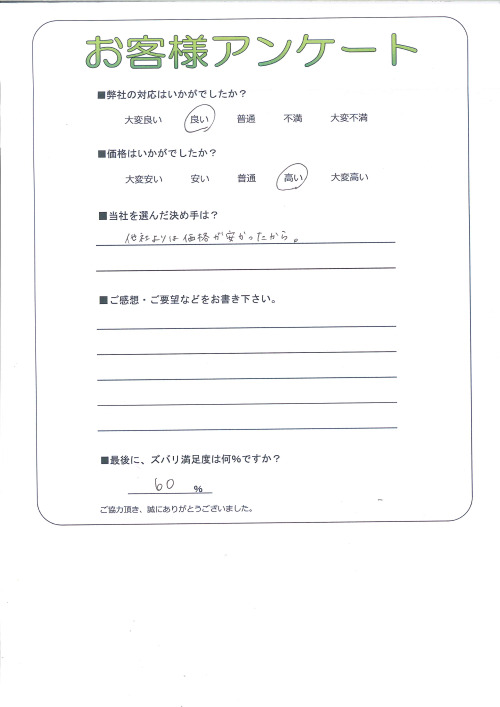 お客様アンケート
■弊社の対応はいかがでしたか？
大変良い 良い 普通 不満 大変不満
■価格はいかがでしたか？
大変安い 安い 普通 高い 大変高い
■当社を選んだ決め手は？
他社よりは価格が安かったから。
■ご感想・ご要望などをお書き下さい。
■最後に、ズバリ満足度は何%ですか？
60 %
ご協力頂き、誠にありがとうございました。